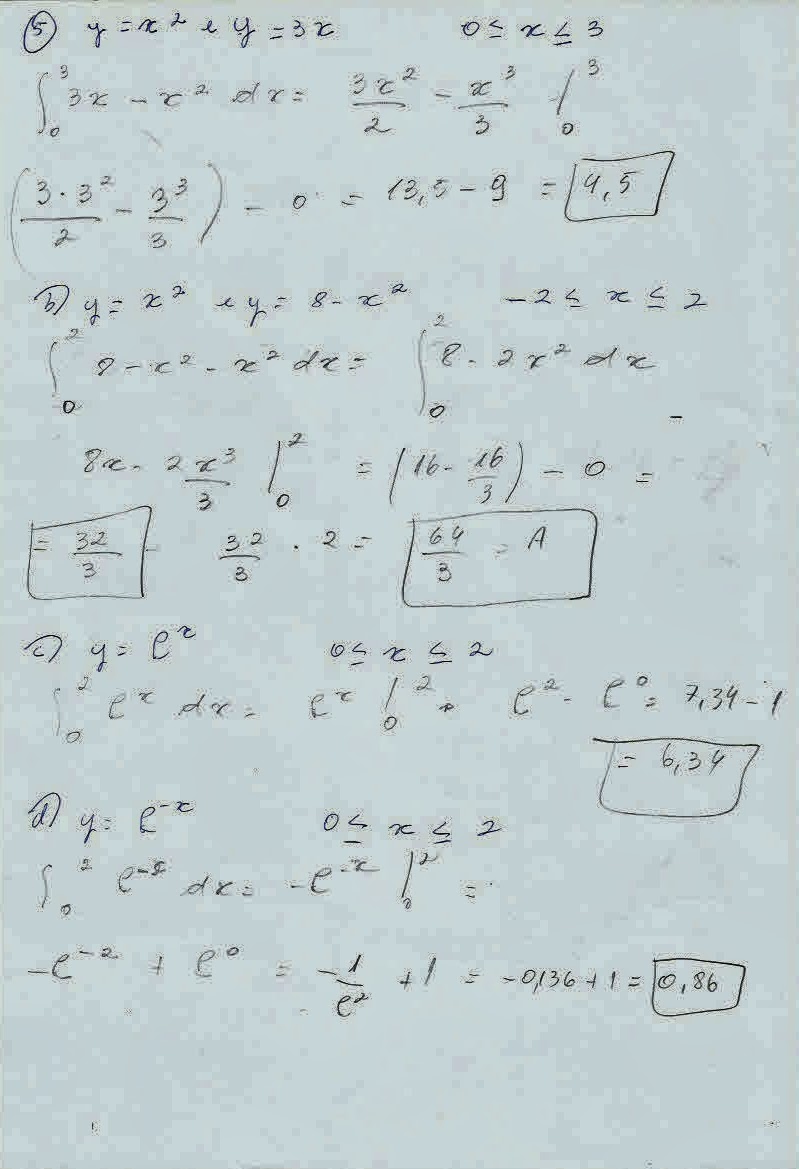 5) y = x² e y = 3x 0 ≤ x ≤ 3
∫₀³ 3x - x² dx = 3x²/2 - x³/3 |₀³
(3·3²/2 - 3³/3) - 0 = 13,5 - 9 = 4,5
b) y = x² e y = 8 - x² -2 ≤ x ≤ 2
∫₀² 8 - x² - x² dx = ∫₀² 8 - 2x² dx
8x - 2x³/3 |₀² = (16 - 16/3) - 0 =
= 32/3 32/3 · 2 = 64/3 = A
c) y = e^x 0 ≤ x ≤ 2
∫₀² e^x dx = e^x |₀² = e² - e⁰ = 7,34 - 1
= 6,34
d) y = e^-x 0 ≤ x ≤ 2
∫₀² e^-x dx = -e^-x |₀² =
-e^-2 + e⁰ = -1/e² + 1 = -0,136 + 1 = 0,86